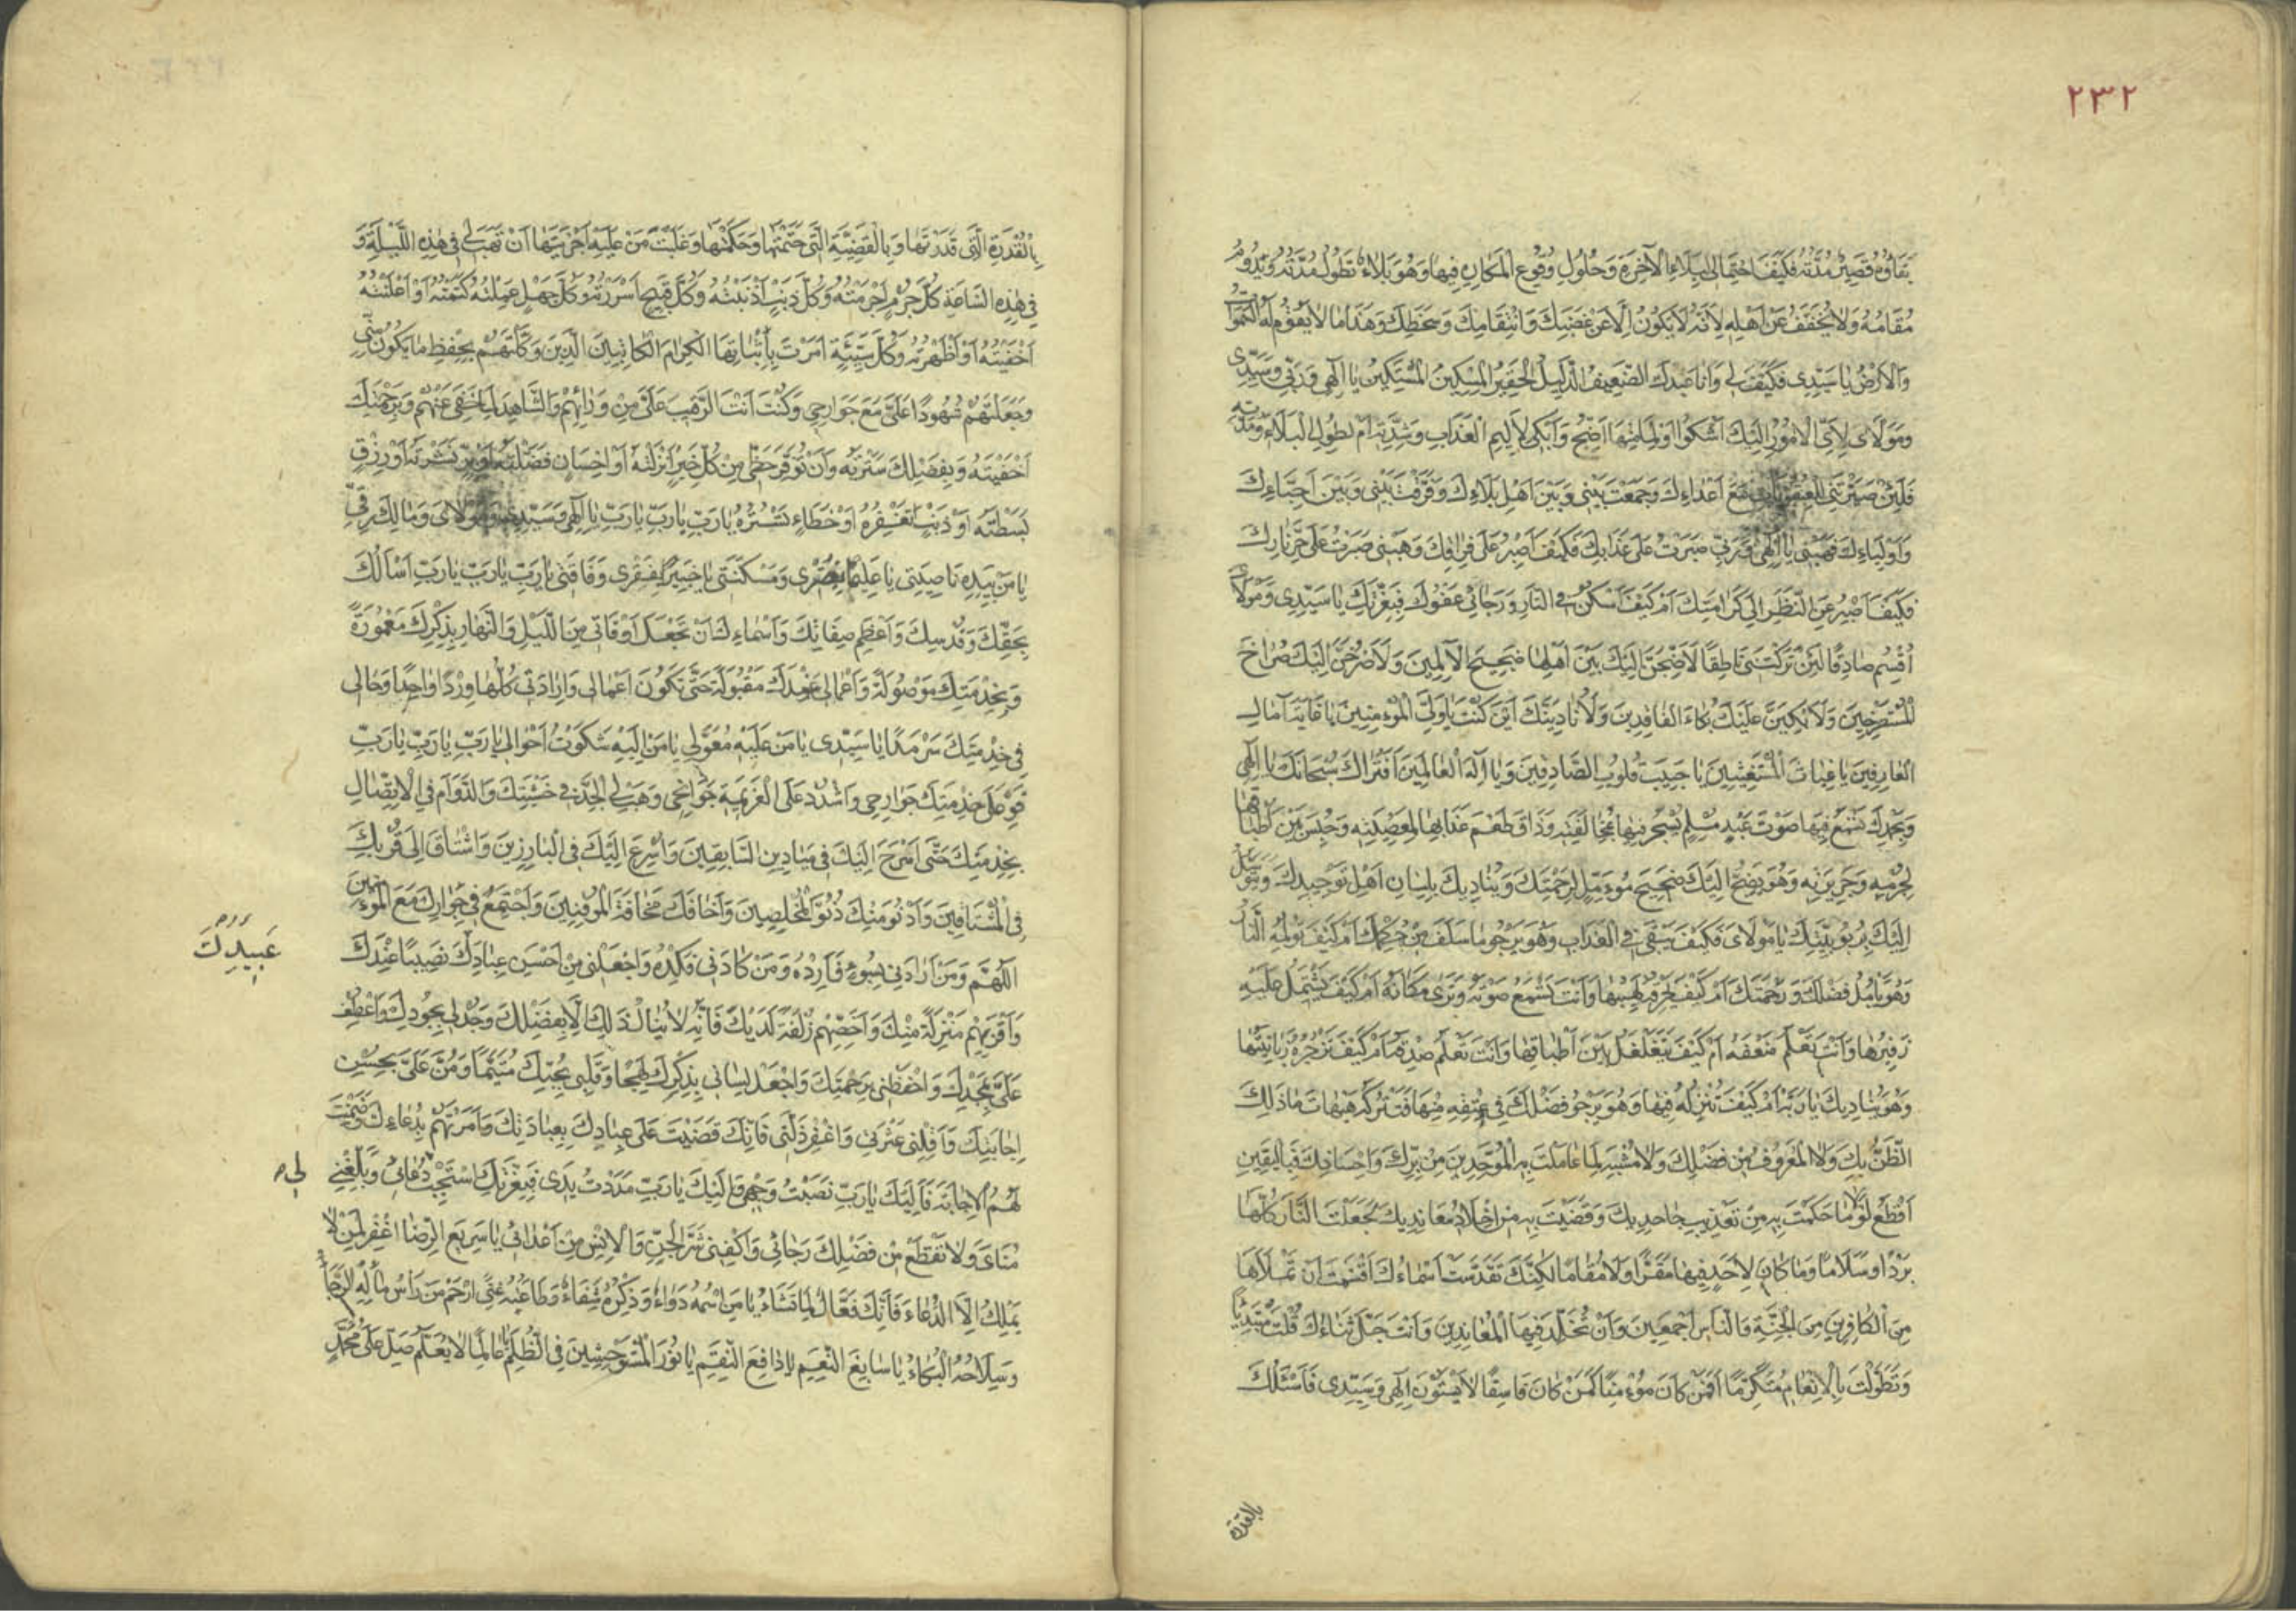 ٢٣٢
بَقَاؤُهُ قَصِيرٌ مُدَّتُهُ فَكَيْفَ احْتِمَالِى لِبَلَاءِ الْآخِرَةِ وَحُلُولِ وُقُوعِ الْمَكَارِهِ فِيهَا وَهُوَ بَلَاءٌ تَطُولُ مُدَّتُهُ وَيَدُومُ
مُقَامُهُ وَلَا يُخَفَّفُ عَنْ اَهْلِهِ لِاَنَّهُ لَا يَكُونُ اِلَّا عَنْ غَضَبِكَ وَانْتِقَامِكَ وَسَخَطِكَ وَهَذَا مَا لَا يَقُومُ لَهُ السَّمَوَاتُ
وَالْاَرْضُ يَا سَيِّدِى فَكَيْفَ لِى وَاَنَا عَبْدُكَ الضَّعِيفُ الذَّلِيلُ الْحَقِيرُ الْمِسْكِينُ الْمُسْتَكِينُ يَا اِلَهِى وَرَبِّى وَسَيِّدِى
وَمَوْلَاىَ لِاَىِّ الْاُمُورِ اِلَيْكَ اَشْكُوا وَلِمَا مِنْهَا اَضِجُّ وَاَبْكِى لِاَلِيمِ الْعَذَابِ وَشِدَّتِهِ اَمْ لِطُولِ الْبَلَاءِ وَمُدَّتِهِ
فَلَئِنْ صَيَّرْتَنِى لِلْعُقُوبَاتِ مَعَ اَعْدَاءِكَ وَجَمَعْتَ بَيْنِى وَبَيْنَ اَهْلِ بَلَاءِكَ وَفَرَّقْتَ بَيْنِى وَبَيْنَ اَحِبَّاءِكَ
وَاَوْلِيَاءِكَ فَهَبْنِى يَا اِلَهِى وَرَبِّى صَبَرْتُ عَلَى عَذَابِكَ فَكَيْفَ اَصْبِرُ عَلَى فِرَاقِكَ وَهَبْنِى صَبَرْتُ عَلَى حَرِّ نَارِكَ
فَكَيْفَ اَصْبِرُ عَنِ النَّظَرِ اِلَى كَرَامَتِكَ اَمْ كَيْفَ اَسْكُنُ فِى النَّارِ وَرَجَائِى عَفْوُكَ فَبِعِزَّتِكَ يَا سَيِّدِى وَمَوْلَاىَ
اُقْسِمُ صَادِقًا لَئِنْ تَرَكْتَنِى نَاطِقًا لَاَضِجَّنَّ اِلَيْكَ بَيْنَ اَهْلِهَا ضَجِيجَ الْآلِمِينَ وَلَاَصْرُخَنَّ اِلَيْكَ صُرَاخَ
الْمُسْتَصْرِخِينَ وَلَاَبْكِيَنَّ عَلَيْكَ بُكَاءَ الْفَاقِدِينَ وَلَاُنَادِيَنَّكَ اَيْنَ كُنْتَ يَا وَلِىَّ الْمُؤْمِنِينَ يَا غَايَةَ آمَالِ
الْعَارِفِينَ يَا غِيَاثَ الْمُسْتَغِيثِينَ يَا حَبِيبَ قُلُوبِ الصَّادِقِينَ وَيَا اِلَهَ الْعَالَمِينَ اَفَتُرَاكَ سُبْحَانَكَ يَا اِلَهِى
وَبِحَمْدِكَ تَسْمَعُ فِيهَا صَوْتَ عَبْدٍ مُسْلِمٍ يُسْجَرُ فِيهَا بِمُخَالَفَتِهِ وَذَاقَ طَعْمَ عَذَابِهَا بِمَعْصِيَتِهِ وَحُبِسَ بَيْنَ اَطْبَاقِهَا
بِجُرْمِهِ وَجَرِيرَتِهِ وَهُوَ يَضِجُّ اِلَيْكَ ضَجِيجَ مُؤَمِّلٍ لِرَحْمَتِكَ وَيُنَادِيكَ بِلِسَانِ اَهْلِ تَوْحِيدِكَ وَيَتَوَسَّلُ
اِلَيْكَ بِرُبُوبِيَّتِكَ يَا مَوْلَاىَ فَكَيْفَ يَبْقَى فِى الْعَذَابِ وَهُوَ يَرْجُو مَا سَلَفَ مِنْ حِلْمِكَ اَمْ كَيْفَ تُولِمُهُ النَّارُ
وَهُوَ يَأْمُلُ فَضْلَكَ وَرَحْمَتَكَ اَمْ كَيْفَ يُحْرِقُهُ لَهِيبُهَا وَاَنْتَ تَسْمَعُ صَوْتَهُ وَتَرَى مَكَانَهُ اَمْ كَيْفَ يَشْتَمِلُ عَلَيْهِ
زَفِيرُهَا وَاَنْتَ تَعْلَمُ ضَعْفَهُ اَمْ كَيْفَ يَتَغَلْغَلُ بَيْنَ اَطْبَاقِهَا وَاَنْتَ تَعْلَمُ صِدْقَهُ اَمْ كَيْفَ تَزْجُرُهُ زَبَانِيَتُهَا
وَهُوَ يُنَادِيكَ يَا رَبَّهُ اَمْ كَيْفَ تُنْزِلُهُ فِيهَا وَهُوَ يَرْجُو فَضْلَكَ فِى عِتْقِهِ مِنْهَا فَتَتْرُكُهُ هَيْهَاتَ مَا ذَلِكَ
الظَّنُّ بِكَ وَلَا الْمَعْرُوفُ مِنْ فَضْلِكَ وَلَا مُشْبِهٌ لِمَا عَامَلْتَ بِهِ الْمُوَحِّدِينَ مِنْ بِرِّكَ وَاِحْسَانِكَ فَبِالْيَقِينِ
اَقْطَعُ لَوْلَا مَا حَكَمْتَ بِهِ مِنْ تَعْذِيبِ جَاحِدِيكَ وَقَضَيْتَ بِهِ مِنْ اِخْلَادِ مُعَانِدِيكَ لَجَعَلْتَ النَّارَ كُلَّهَا
بَرْدًا وَسَلَامًا وَمَا كَانَ لِاَحَدٍ فِيهَا مَقَرًّا وَلَا مُقَامًا لَكِنَّكَ تَقَدَّسَتْ اَسْمَاءُكَ اَقْسَمْتَ اَنْ تَمْلَاَهَا
مِنَ الْكَافِرِينَ مِنَ الْجِنَّةِ وَالنَّاسِ اَجْمَعِينَ وَاَنْ تُخَلِّدَ فِيهَا الْمُعَانِدِينَ وَاَنْتَ جَلَّ ثَنَاءُكَ قُلْتَ مُبْتَدِئًا
وَتَطَوَّلْتَ بِالْاِنْعَامِ مُتَكَرِّمًا اَفَمَنْ كَانَ مُؤْمِنًا كَمَنْ كَانَ فَاسِقًا لَا يَسْتَوُونَ اِلَهِى وَسَيِّدِى فَاَسْئَلُكَ
بالقدرة
بِالْقُدْرَةِ الَّتِى قَدَّرْتَهَا وَبِالْقَضِيَّةِ الَّتِى حَتَمْتَهَا وَحَكَمْتَهَا وَغَلَبْتَ مَنْ عَلَيْهِ اَجْرَيْتَهَا اَنْ تَهَبَ لِى فِى هَذِهِ اللَّيْلَةِ وَ
فِى هَذِهِ السَّاعَةِ كُلَّ جُرْمٍ اَجْرَمْتُهُ وَكُلَّ ذَنْبٍ اَذْنَبْتُهُ وَكُلَّ قَبِيحٍ اَسْرَرْتُهُ وَكُلَّ جَهْلٍ عَمِلْتُهُ كَتَمْتُهُ اَوْ اَعْلَنْتُهُ
اَخْفَيْتُهُ اَوْ اَظْهَرْتُهُ وَكُلَّ سَيِّئَةٍ اَمَرْتَ بِاِثْبَاتِهَا الْكِرَامَ الْكَاتِبِينَ الَّذِينَ وَكَّلْتَهُمْ بِحِفْظِ مَا يَكُونُ مِنِّى
وَجَعَلْتَهُمْ شُهُودًا عَلَىَّ مَعَ جَوَارِحِى وَكُنْتَ اَنْتَ الرَّقِيبَ عَلَىَّ مِنْ وَرَائِهِمْ وَالشَّاهِدَ لِمَا خَفِىَ عَنْهُمْ وَبِرَحْمَتِكَ
اَخْفَيْتَهُ وَبِفَضْلِكَ سَتَرْتَهُ وَاَنْ تُوَفِّرَ حَظِّى مِنْ كُلِّ خَيْرٍ اَنْزَلْتَهُ اَوْ اِحْسَانٍ فَضَّلْتَهُ اَوْ بِرٍّ نَشَرْتَهُ اَوْ رِزْقٍ
بَسَطْتَهُ اَوْ ذَنْبٍ تَغْفِرُهُ اَوْ خَطَاءٍ تَسْتُرُهُ يَا رَبِّ يَا رَبِّ يَا رَبِّ يَا اِلَهِى وَسَيِّدِى وَمَوْلَاىَ وَمَالِكَ رِقِّى
يَا مَنْ بِيَدِهِ نَاصِيَتِى يَا عَلِيمًا بِضُرِّى وَمَسْكَنَتِى يَا خَبِيرًا بِفَقْرِى وَفَاقَتِى يَا رَبِّ يَا رَبِّ يَا رَبِّ اَسْاَلُكَ
بِحَقِّكَ وَقُدْسِكَ وَاَعْظَمِ صِفَاتِكَ وَاَسْمَاءِكَ اَنْ تَجْعَلَ اَوْقَاتِى مِنَ اللَّيْلِ وَالنَّهَارِ بِذِكْرِكَ مَعْمُورَةً
وَبِخِدْمَتِكَ مَوْصُولَةً وَاَعْمَالِى عِنْدَكَ مَقْبُولَةً حَتَّى تَكُونَ اَعْمَالِى وَاِرَادَتِى كُلُّهَا وِرْدًا وَاحِدًا وَحَالِى
فِى خِدْمَتِكَ سَرْمَدًا يَا سَيِّدِى يَا مَنْ عَلَيْهِ مُعَوَّلِى يَا مَنْ اِلَيْهِ شَكَوْتُ اَحْوَالِى يَا رَبِّ يَا رَبِّ يَا رَبِّ
قَوِّ عَلَى خِدْمَتِكَ جَوَارِحِى وَاشْدُدْ عَلَى الْعَزِيمَةِ جَوَانِحِى وَهَبْ لِى الْجِدَّ فِى خَشْيَتِكَ وَالدَّوَامَ فِى الْاِتِّصَالِ
بِخِدْمَتِكَ حَتَّى اَسْرَحَ اِلَيْكَ فِى مَيَادِينِ السَّابِقِينَ وَاُسْرِعَ اِلَيْكَ فِى الْبَارِزِينَ وَاَشْتَاقَ اِلَى قُرْبِكَ
فِى الْمُشْتَاقِينَ وَاَدْنُوَ مِنْكَ دُنُوَّ الْمُخْلِصِينَ وَاَخَافَكَ مَخَافَةَ الْمُوقِنِينَ وَاَجْتَمِعَ فِى جِوَارِكَ مَعَ الْمُؤْمِنِينَ
اَللَّهُمَّ وَمَنْ اَرَادَنِى بِسُوءٍ فَاَرِدْهُ وَمَنْ كَادَنِى فَكِدْهُ وَاجْعَلْنِى مِنْ اَحْسَنِ عِبَادِكَ نَصِيبًا عِنْدَكَ
عَبِيدِكَ
وَاَقْرَبِهِمْ مَنْزِلَةً مِنْكَ وَاَخَصِّهِمْ زُلْفَةً لَدَيْكَ فَاِنَّهُ لَا يُنَالُ ذَلِكَ اِلَّا بِفَضْلِكَ وَجُدْ لِى بِجُودِكَ وَاعْطِفْ
عَلَىَّ بِمَجْدِكَ وَاحْفَظْنِى بِرَحْمَتِكَ وَاجْعَلْ لِسَانِى بِذِكْرِكَ لَهِجًا وَقَلْبِى بِحُبِّكَ مُتَيَّمًا وَمُنَّ عَلَىَّ بِحُسْنِ
اِجَابَتِكَ وَاَقِلْنِى عَثْرَتِى وَاغْفِرْ زَلَّتِى فَاِنَّكَ قَضَيْتَ عَلَى عِبَادِكَ بِعِبَادَتِكَ وَاَمَرْتَهُمْ بِدُعَاءِكَ وَضَمِنْتَ
لَهُمُ الْاِجَابَةَ فَاِلَيْكَ يَا رَبِّ نَصَبْتُ وَجْهِى وَاِلَيْكَ يَا رَبِّ مَدَدْتُ يَدِى فَبِعِزَّتِكَ اسْتَجِبْ دُعَائِى وَبَلِّغْنِى
لى
مُنَاىَ وَلَا تَقْطَعْ مِنْ فَضْلِكَ رَجَائِى وَاكْفِنِى شَرَّ الْجِنِّ وَالْاِنْسِ مِنْ اَعْدَائِى يَا سَرِيعَ الرِّضَا اِغْفِرْ لِمَنْ لَا
يَمْلِكُ اِلَّا الدُّعَاءَ فَاِنَّكَ فَعَّالٌ لِمَا تَشَاءُ يَا مَنِ اسْمُهُ دَوَاءٌ وَذِكْرُهُ شِفَاءٌ وَطَاعَتُهُ غِنًى اِرْحَمْ مَنْ رَأْسُ مَالِهِ الرَّجَاءُ
وَسِلَاحُهُ الْبُكَاءُ يَا سَابِغَ النِّعَمِ يَا دَافِعَ النِّقَمِ يَا نُورَ الْمُسْتَوْحِشِينَ فِى الظُّلَمِ يَا عَالِمًا لَا يُعَلَّمُ صَلِّ عَلَى مُحَمَّدٍ